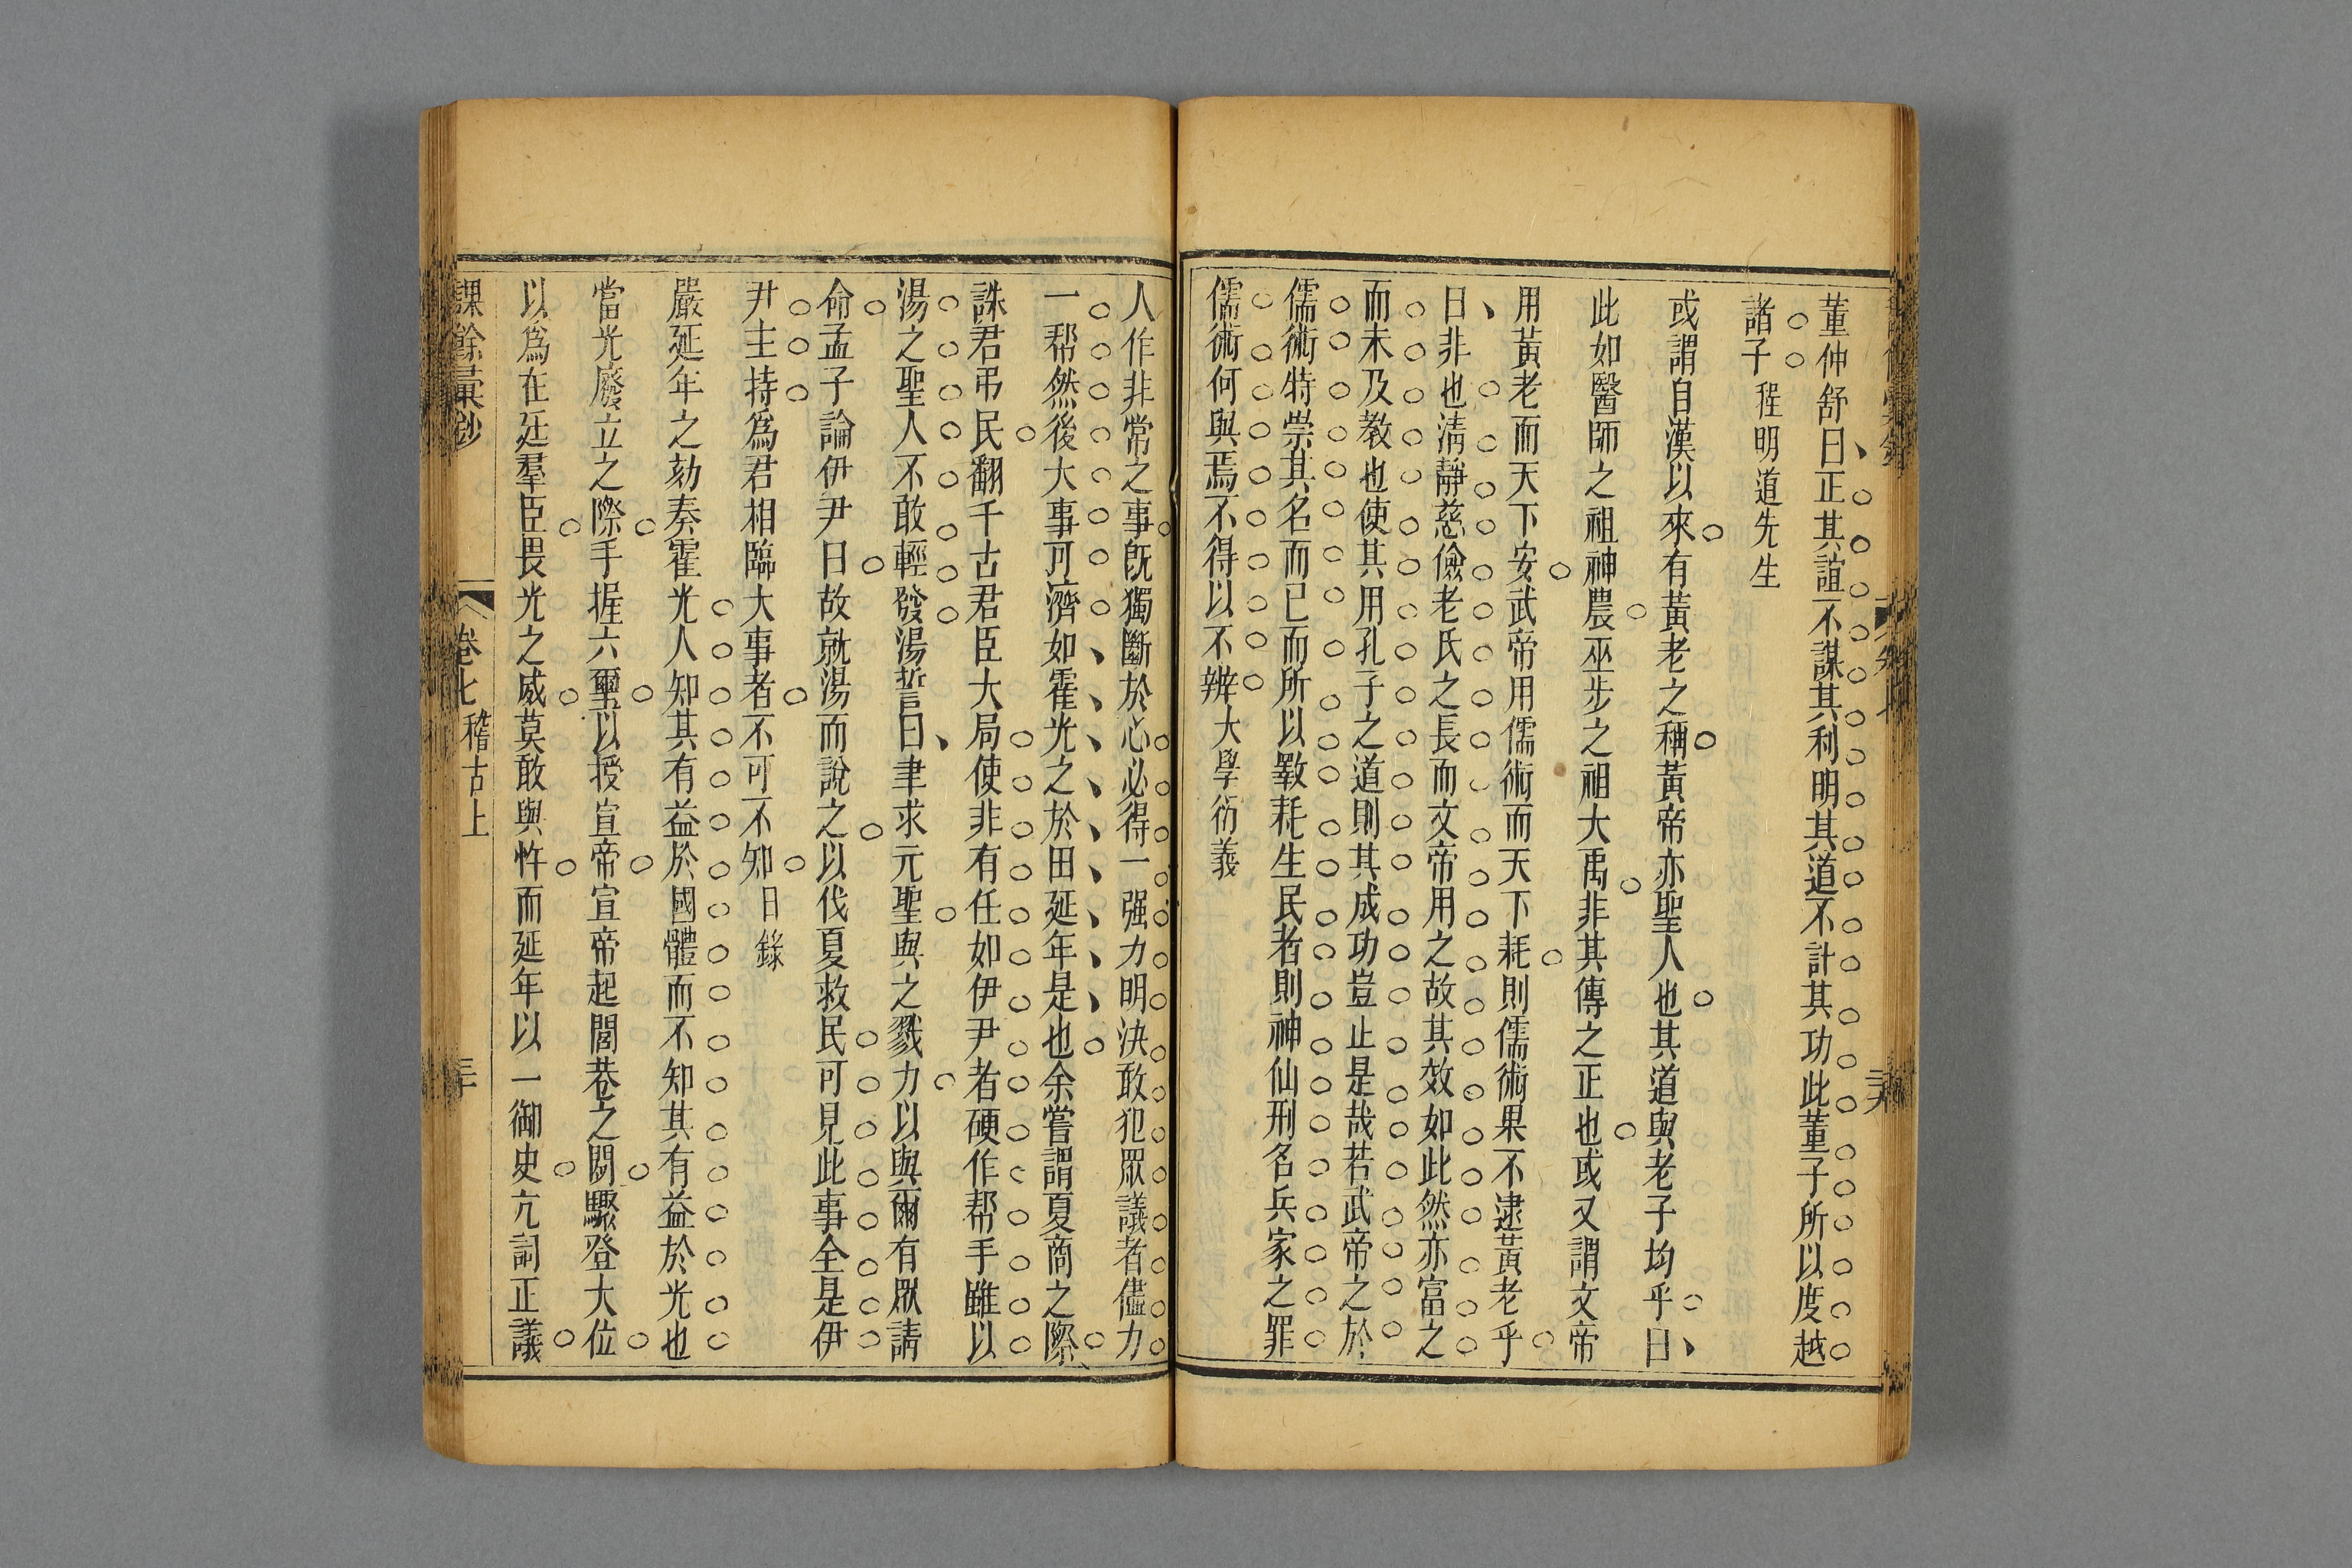 董仲舒曰正其誼不謀其利明其道不計其功此董子所以度越
諸子程明道先生
或謂自漢以來有黃老之稱黃帝亦聖人也其道與老子均乎曰
此如醫師之祖神農巫步之祖大禹非其傳之正也或又謂文帝
用黃老而天下安武帝用儒術而天下耗則儒術果不逮黃老乎
曰非也清靜慈儉老氏之長而文帝用之故其效如此然亦富之
而未及教也使其用孔子之道則其成功豈止是哉若武帝之於
儒術特崇其名而已而所以斁耗生民者則神仙刑名兵家之罪
儒術何與焉不得以不辨大學衍義
人作非常之事旣獨斷於心必得一强力明決敢犯眾議者儘力
一帮然後大事可濟如霍光之於田延年是也余嘗謂夏商之際
誅君弔民翻千古君臣大局使非有任如伊尹者硬作帮手雖以
湯之聖人不敢輕發湯誓曰聿求元聖與之戮力以與爾有眾請
命孟子論伊尹曰故就湯而說之以伐夏救民可見此事全是伊
尹主持爲君相臨大事者不可不知日錄
嚴延年之劾奏霍光人知其有益於國體而不知其有益於光也
當光廢立之際手握六璽以授宣帝宣帝起閭巷之閼驟登大位
以爲在廷羣臣畏光之威莫敢與忤而延年以一御史亢詞正議
課餘彙鈔
卷七 稽古上
三十